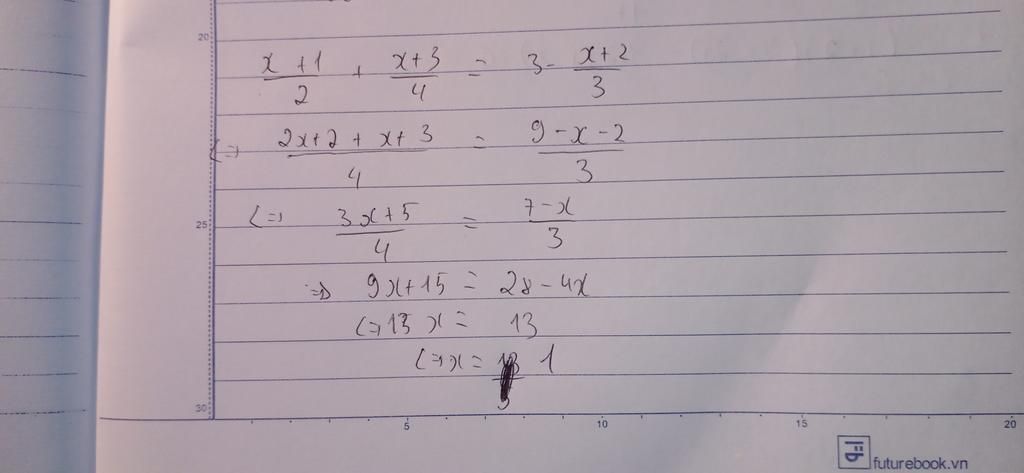 20
x + 1/2 + x+3/4 = 3 - x+2/3
<=> 2x+2 + x+3/4 = 9-x-2/3
25
<=> 3x+5/4 = 7-x/3
=> 9x+15 = 28-4x
<=> 13x = 13
<=> x = 1
30
5 10 15 20
futurebook.vn